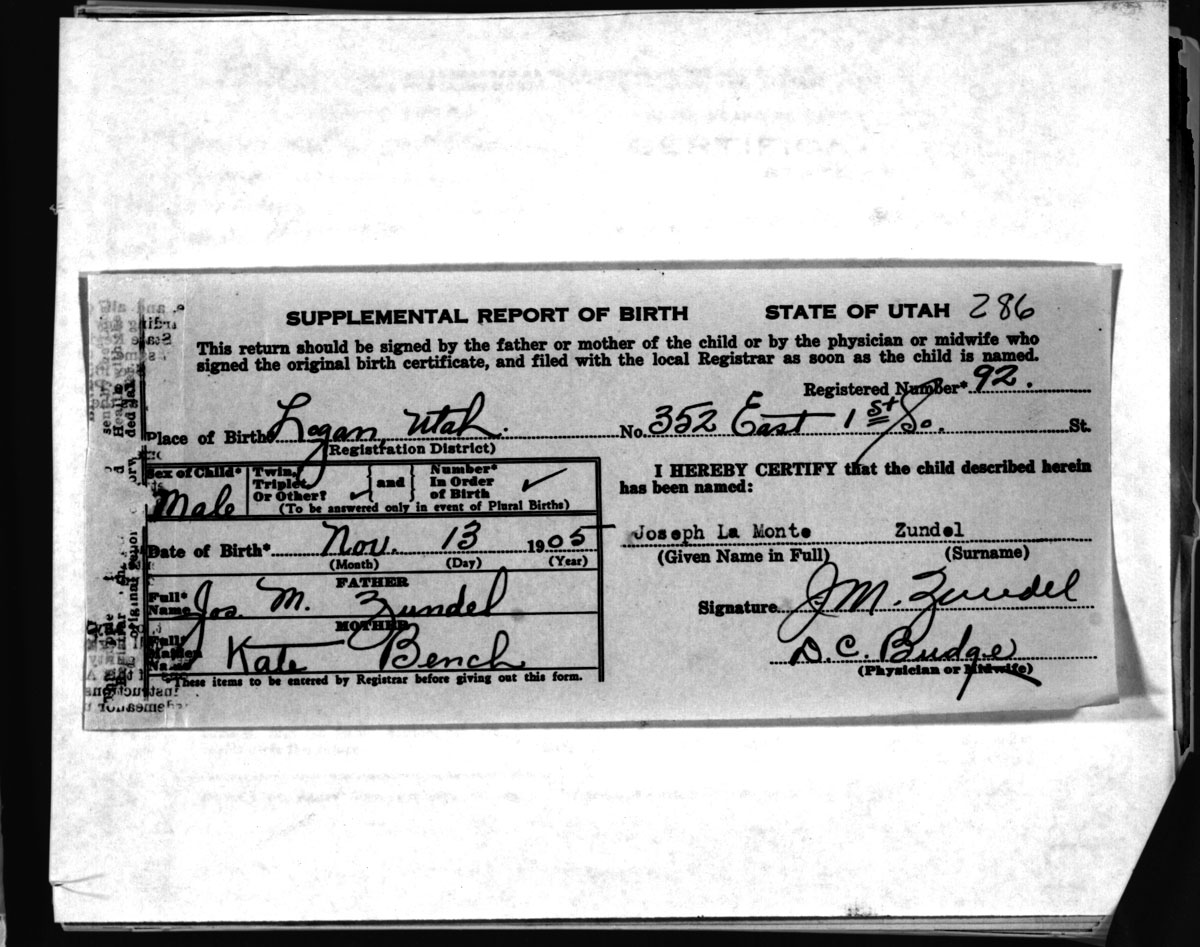 SUPPLEMENTAL REPORT OF BIRTH STATE OF UTAH 286
This return should be signed by the father or mother of the child or by the physician or midwife who
signed the original birth certificate, and filed with the local Registrar as soon as the child is named.
Registered Number* 92.
Place of Birth Logan, Utah. No. 352 East 1st So. St.
(Registration District)
Sex of Child* Male
Twin, Triplet, Or Other? ✓ and Number* In Order of Birth ✓
(To be answered only in event of Plural Births)
Date of Birth* Nov. 13 1905
(Month) (Day) (Year)
FATHER
Full* Name Jos. M. Zundel
MOTHER
Full* Maiden Name Kate Bench
These items to be entered by Registrar before giving out this form.
I HEREBY CERTIFY that the child described herein
has been named:
Joseph La Monte Zundel
(Given Name in Full) (Surname)
Signature J M. Zundel
D. C. Budge
(Physician or Midwife)